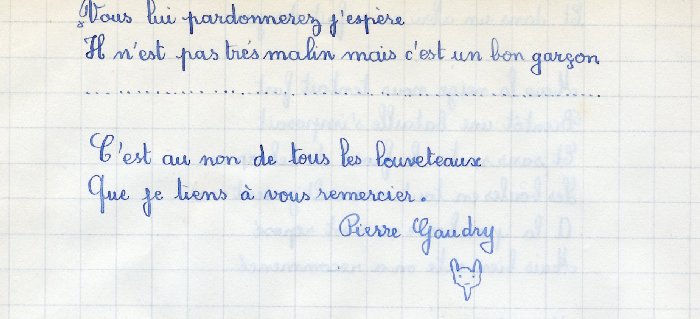 Vous lui pardonnerez j'espère
Il n'est pas trés malin mais c'est un bon garçon
......................................................
C'est au non de tous les louveteaux
Que je tiens à vous remercier.
Pierre Gaudry